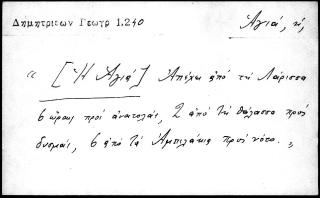 Δημητριέων Γεωγρ 1.240
Αγιά, η,
" [Η Αγιά] Απέχω από τη Λάρισσα
6 ώραις πρός ανατολάς, 2 από τη θάλασσα πρός
δυσμάς, 6 από τα Αμπιλάκια πρός νότο. "